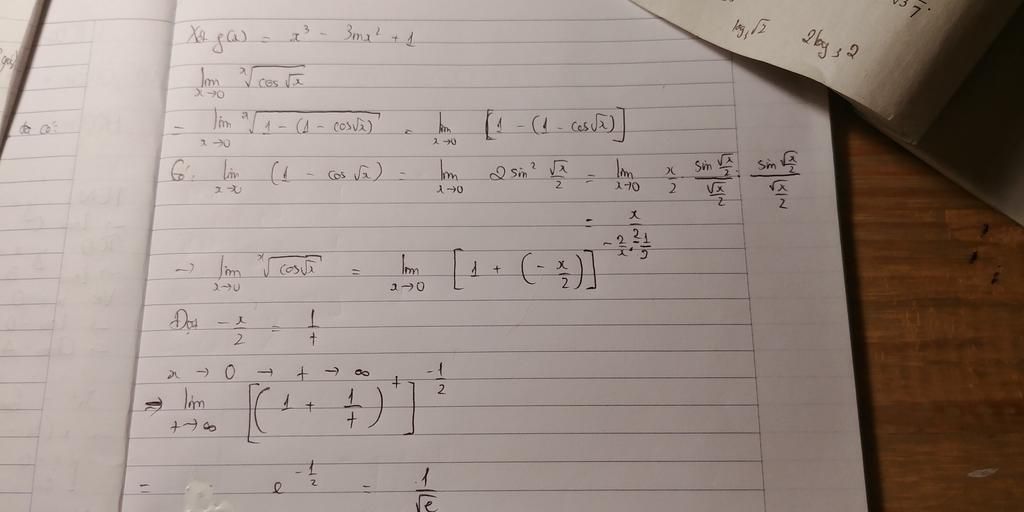 log₃√2 2log₃2
Xét g(x) = x³ - 3mx² + 1
lim x→0 ˣ√(cos √x)
= lim x→0 ˣ√(1 - (1 - cos√x)) = lim x→0 [1 - (1 - cos√x)]
Có: lim x→0 (1 - cos √x) = lim x→0 2 sin² √x/2 = lim x→0 x/2 · (sin √x/2)/(√x/2) · (sin √x/2)/(√x/2)
= x/2
→ lim x→0 ˣ√(cos√x) = lim x→0 [1 + (-x/2)]^(-2/x · -1/2)
Đặt -x/2 = 1/t
x → 0 → t → ∞
⇒ lim t→∞ [(1 + 1/t)^t]^(-1/2)
= e^(-1/2) = 1/√e